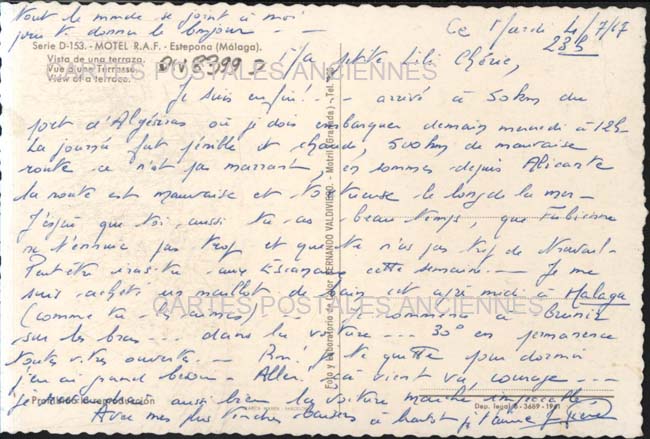 Tout le monde se joint à moi
pour te donner le bonjour - -
Ce Mardi 4/7/67
23h
Serie D-153. - MOTEL R.A.F. - Estepona (Málaga).
Vista de una terraza.
Vue d'une Terrasse.
View of a terrace.
DIV8399 D
CARTES POSTALES ANCIENNES
Ma ptite Lili Chérie,
Je suis enfin! - - arrivé à 50 kms du
port d'Algésiras où je dois embarquer demain mercredi à 12h
La journée fut pénible et chaude, 500 kms de mauvaise
route ce n'est pas marrant, en sommes depuis Alicante
la route est mauvaise et tortueuse le long de la mer -
J'espère que toi aussi tu as beau temps, que Fabienne
ne t'ennuie pas trop et que tu n'as pas trop de travail -
Peut être iras-tu aux cette semaine - Je me
suis acheté un maillot de bain cet après midi à Malaga
(comme tu Je commence à brunir
sur les bras - - dans la voiture - - 30° en permanence
toutes vitres ouvertes - Bon! Je te quitte pour dormir
j'en ai grand besoin - Allez, ça vient va, courage - -
CARTES POSTALES ANCIENNES
je aussi bien la voiture marche impeccable -
Avec mes plus tendres baisers à bientôt je t'aime
Foto y Laboratorio de Color BERNANDO VALDIVIESO. - Motril (Granada) - Tel.
Prohibida la reproducción
Dep. legal B - 3689 - 1961